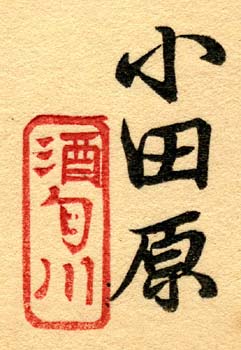 小田原
酒匂川